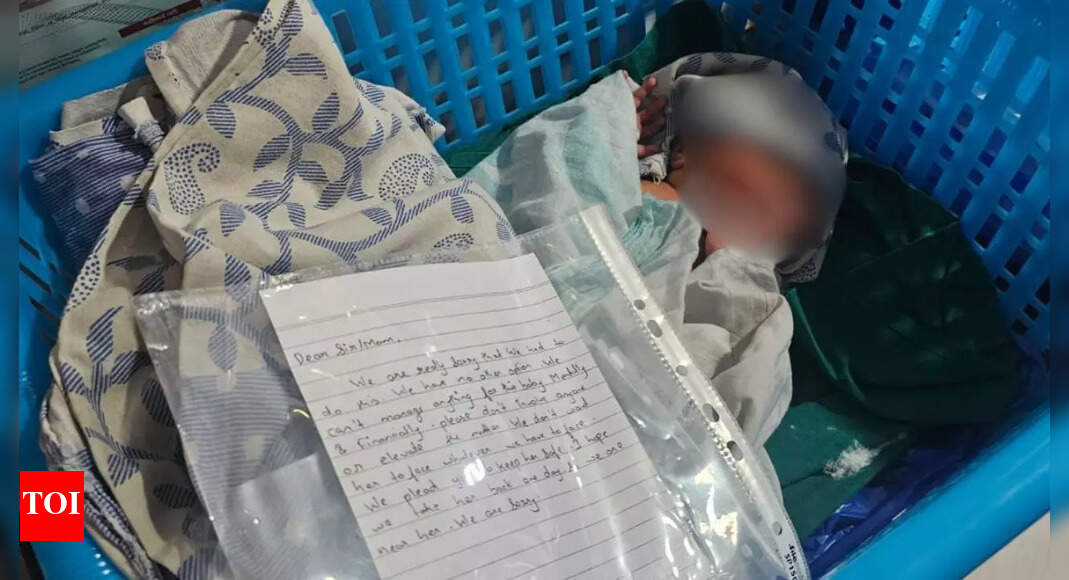 Dear Sir/Mam,
We are really sorry that We had to
do this. We have no other option. We
can't manage anything for this baby Mentally
& Financially. please don't involve anyone
or elevate the matter. We don't want
her to face whatever we have to face
We plead you to keep her safe. I hope
we take her back one day. & we are
near her. We are sorry.
TOI